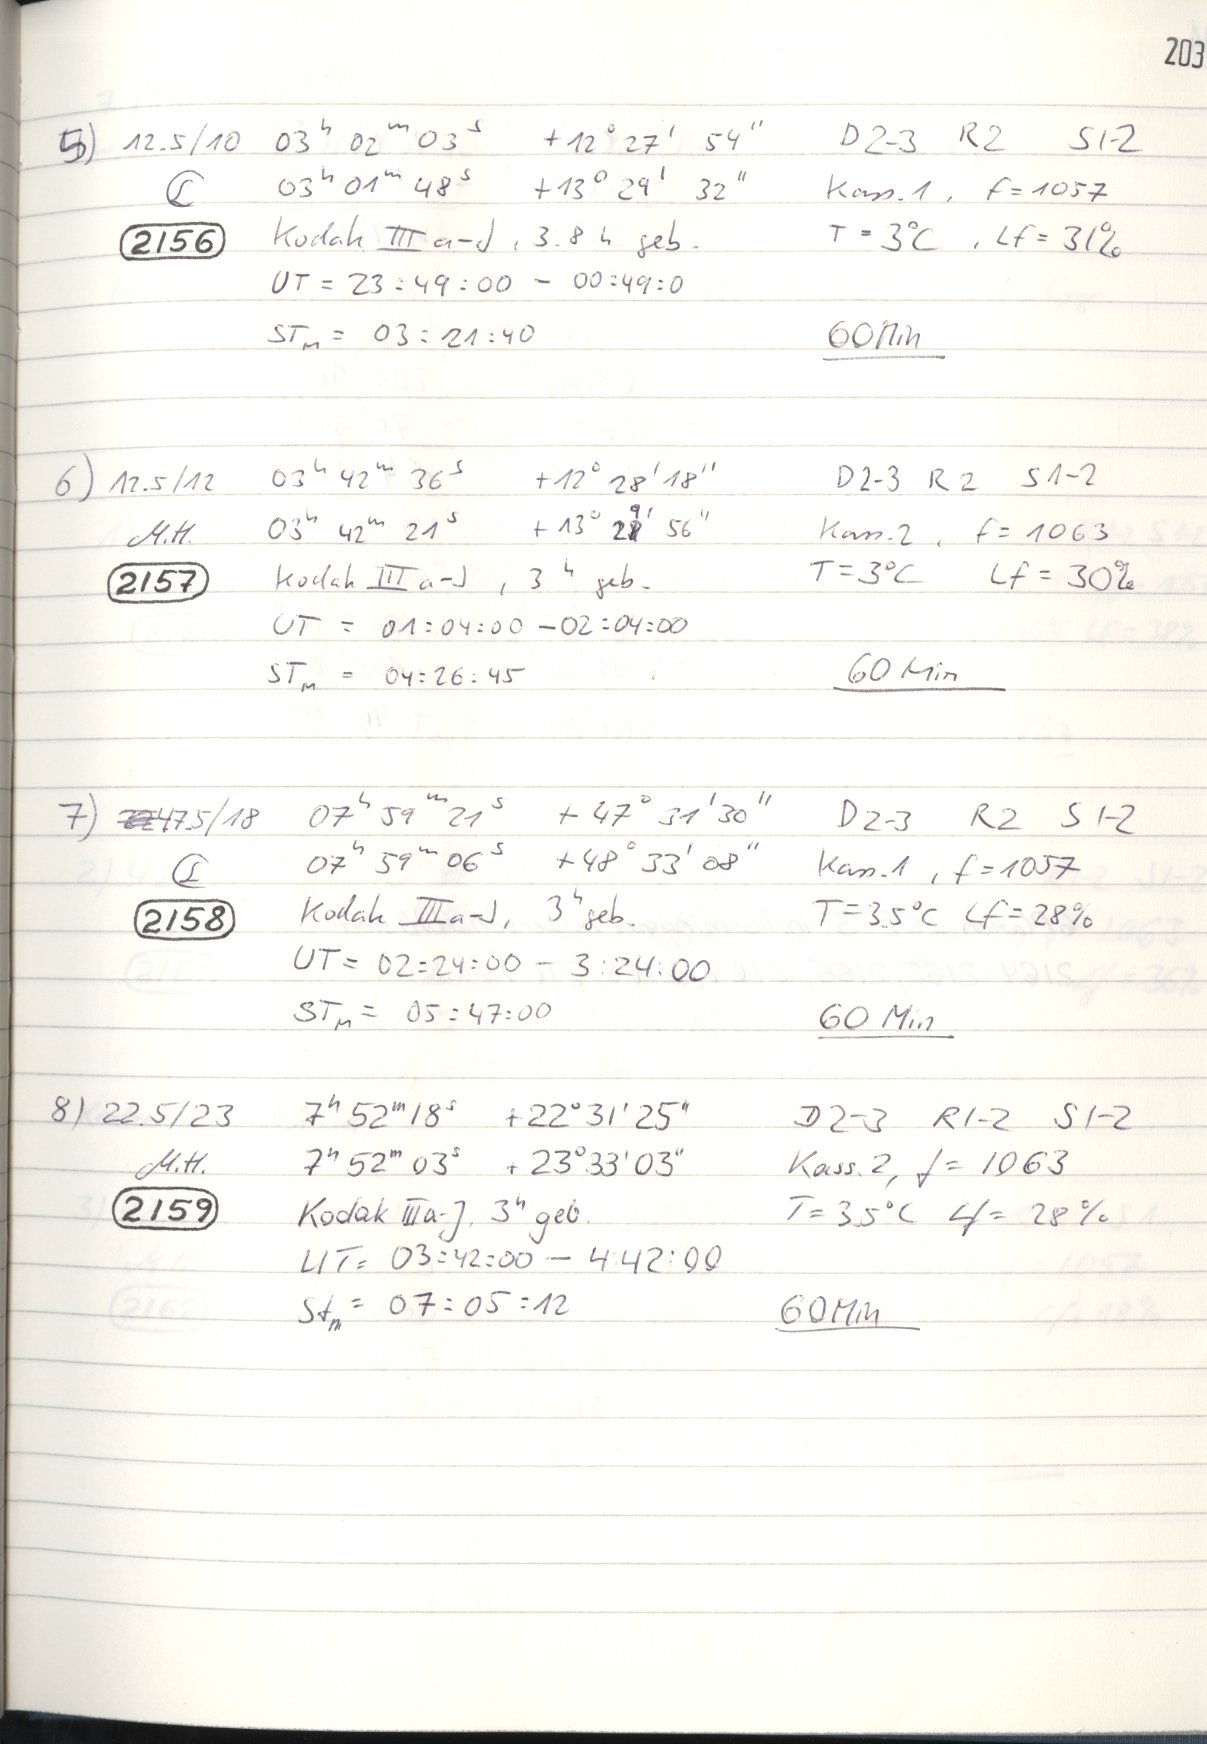 203
5) 12.5/10 03h 02m 03s +12° 27' 54" D2-3 R2 S1-2
03h 01m 48s +13° 29' 32" Kass.1, f=1057
2156 Kodak III a-J, 3.8 h geb. T = 3°C, Lf = 31%
UT = 23:49:00 - 00:49:0
STM = 03:21:40 60Min
6) 12.5/12 03h 42m 36s +12° 28' 18" D2-3 R2 S1-2
M.H. 03h 42m 21s +13° 29' 56" Kass.2, f=1063
2157 Kodak III a-J, 3h geb. T=3°C Lf = 30%
UT = 01:04:00 - 02:04:00
STM = 04:26:45 60 Min
7) 47.5/18 07h 59m 21s +47° 31' 30" D2-3 R2 S1-2
07h 59m 06s +48° 33' 08" Kass.1, f=1057
2158 Kodak III a-J, 3h geb. T=3.5°C Lf=28%
UT = 02:24:00 - 3:24:00
STM = 05:47:00 60 Min
8) 22.5/23 7h 52m 18s +22° 31' 25" D2-3 R1-2 S1-2
M.H. 7h 52m 03s +23° 33' 03" Kass.2, f= 1063
2159 Kodak IIIa-J, 3h geb. T=3.5°C Lf= 28%
UT= 03:42:00 - 4:42:00
Stm = 07:05:12 60Min